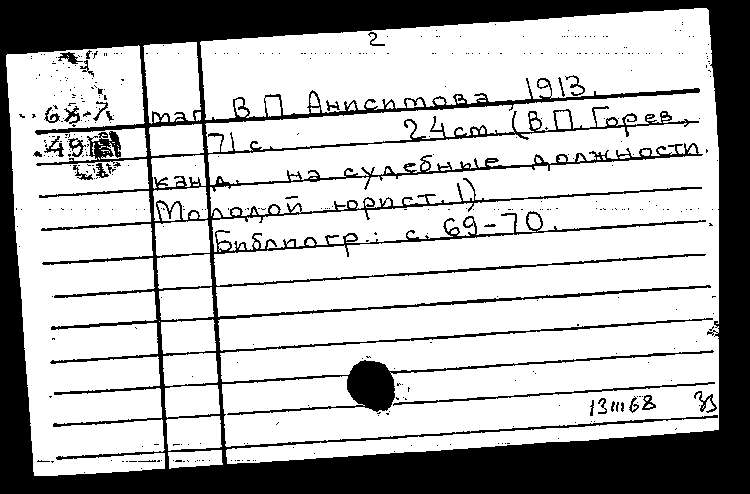 2
68-7 маг. В.П. Анисимова, 1913.
491 71 с. 24 см. (В.П. Горев,
канд. на судебные должности.
Молодой юрист. 1).
Библиогр.: с. 69-70.
13III68